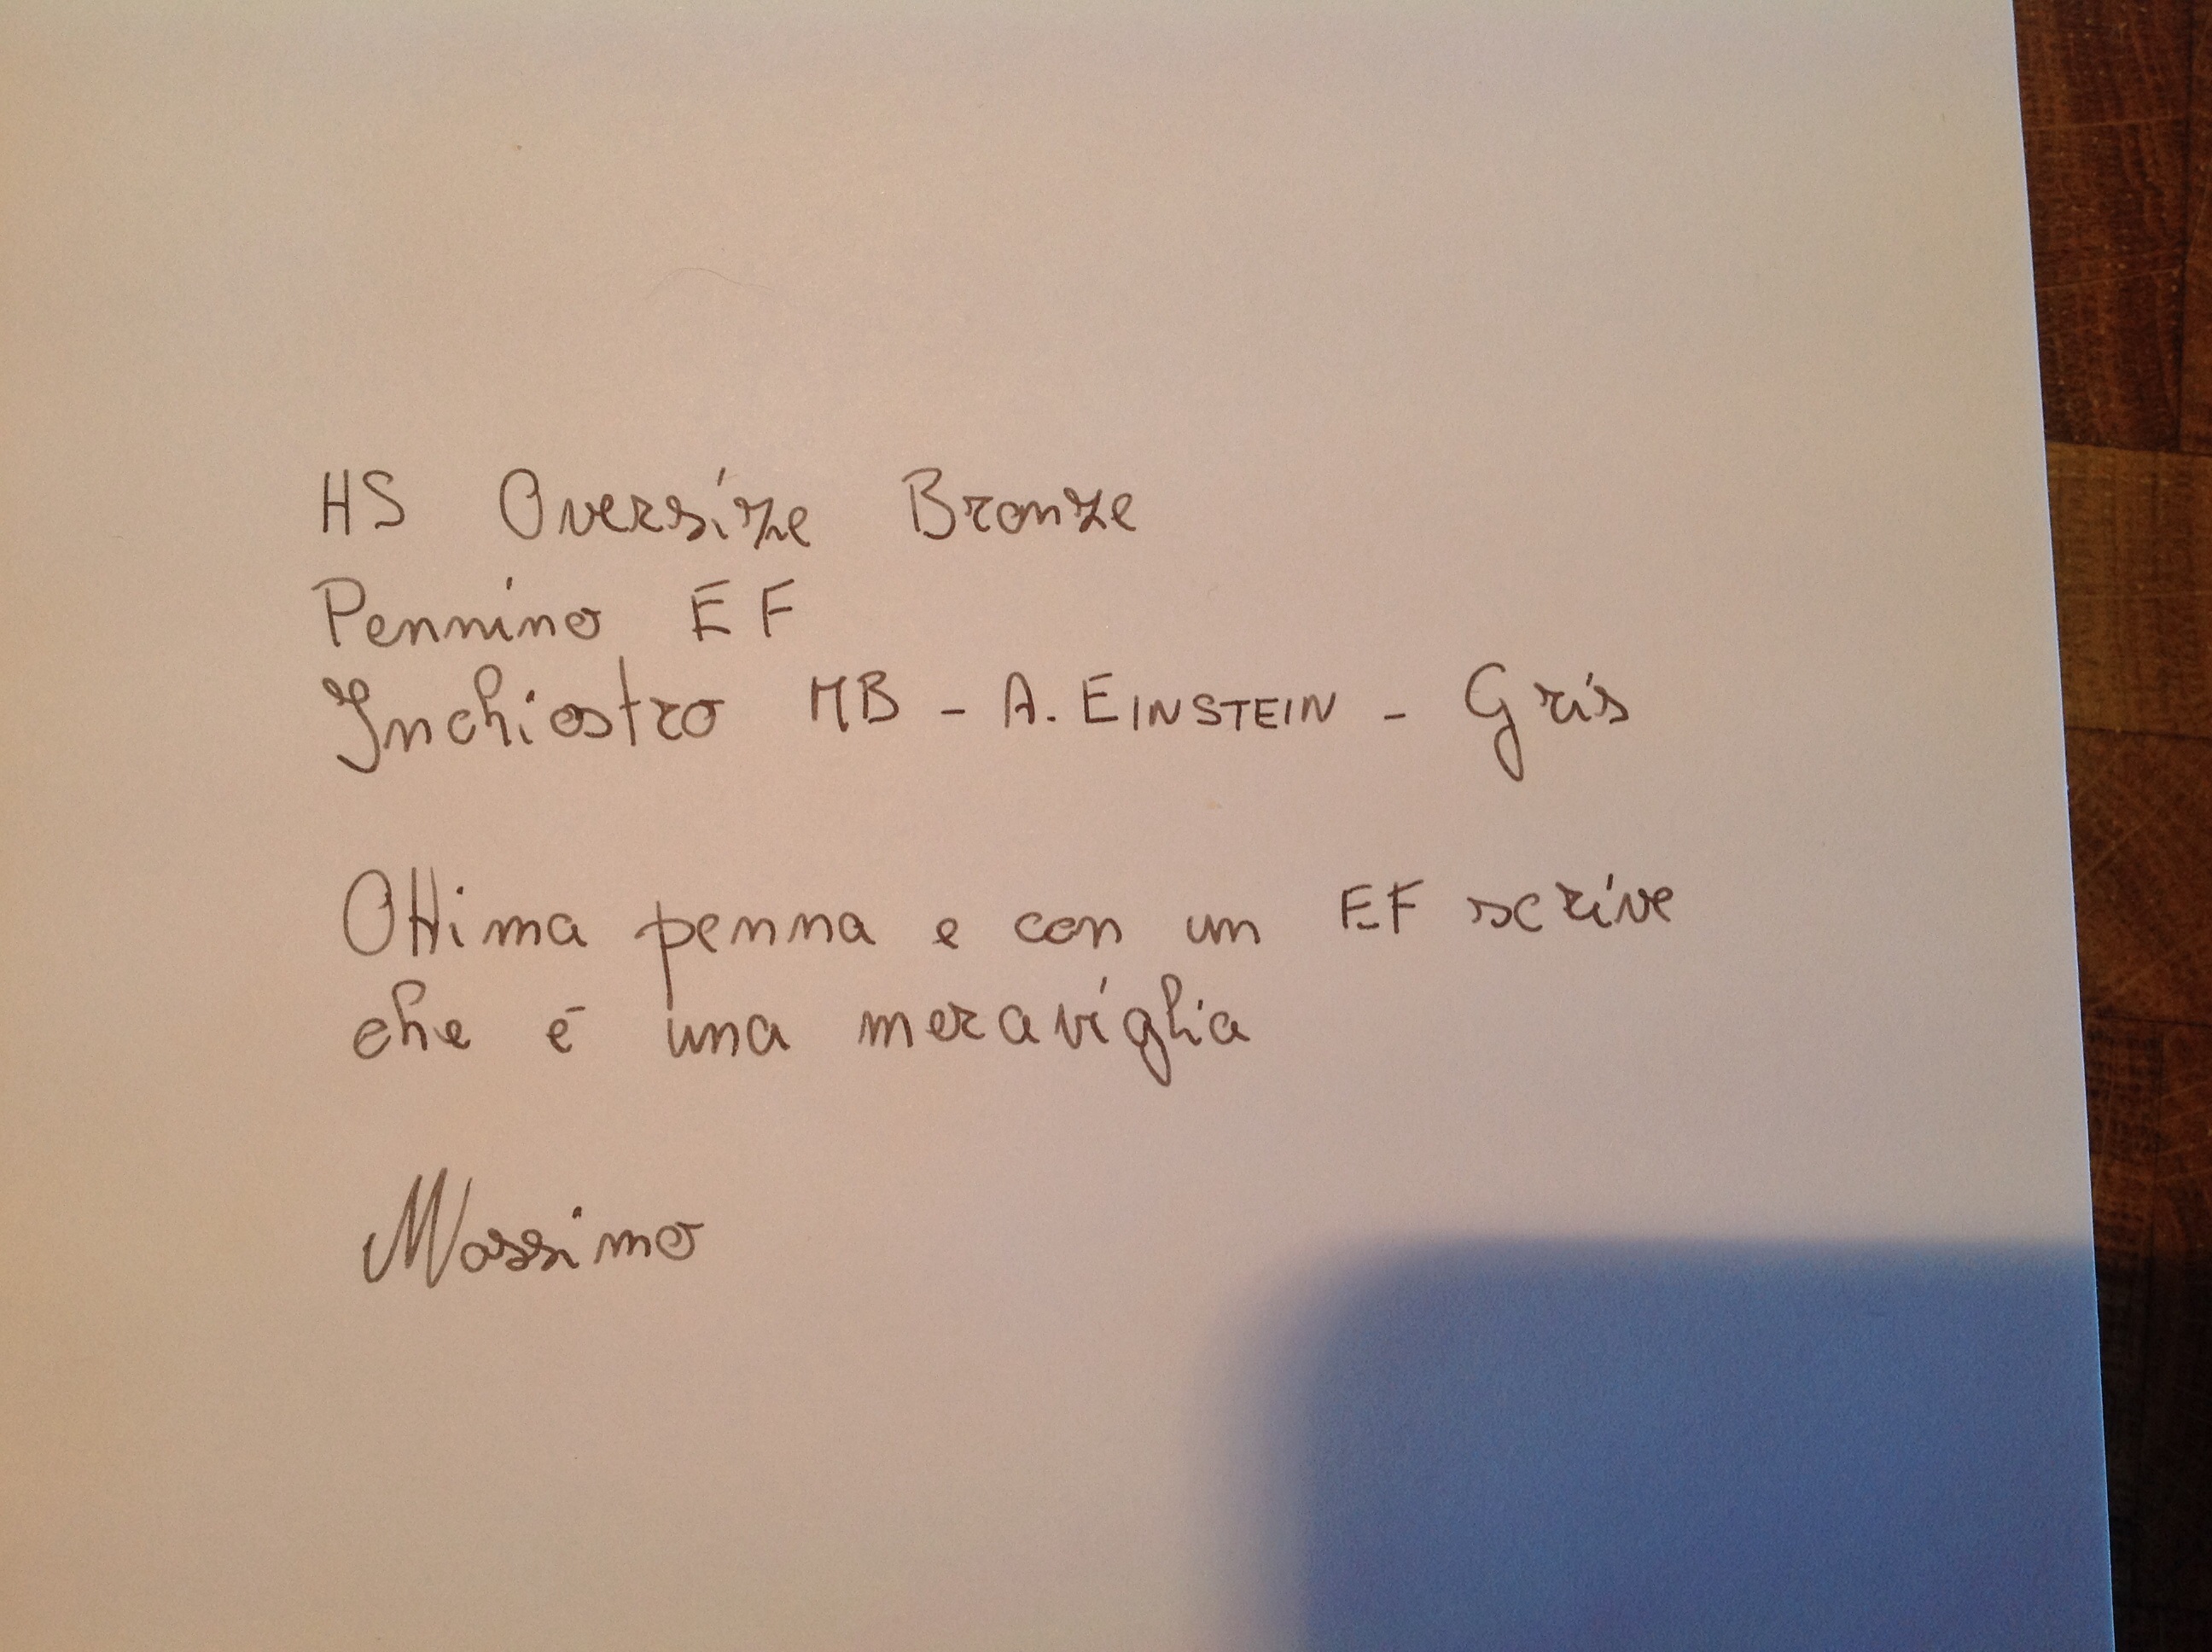 HS Oversize Bronze
Pennino EF
Inchiostro MB - A. EINSTEIN - Gris
Ottima penna e con un EF scrive
che é una meraviglia
Massimo